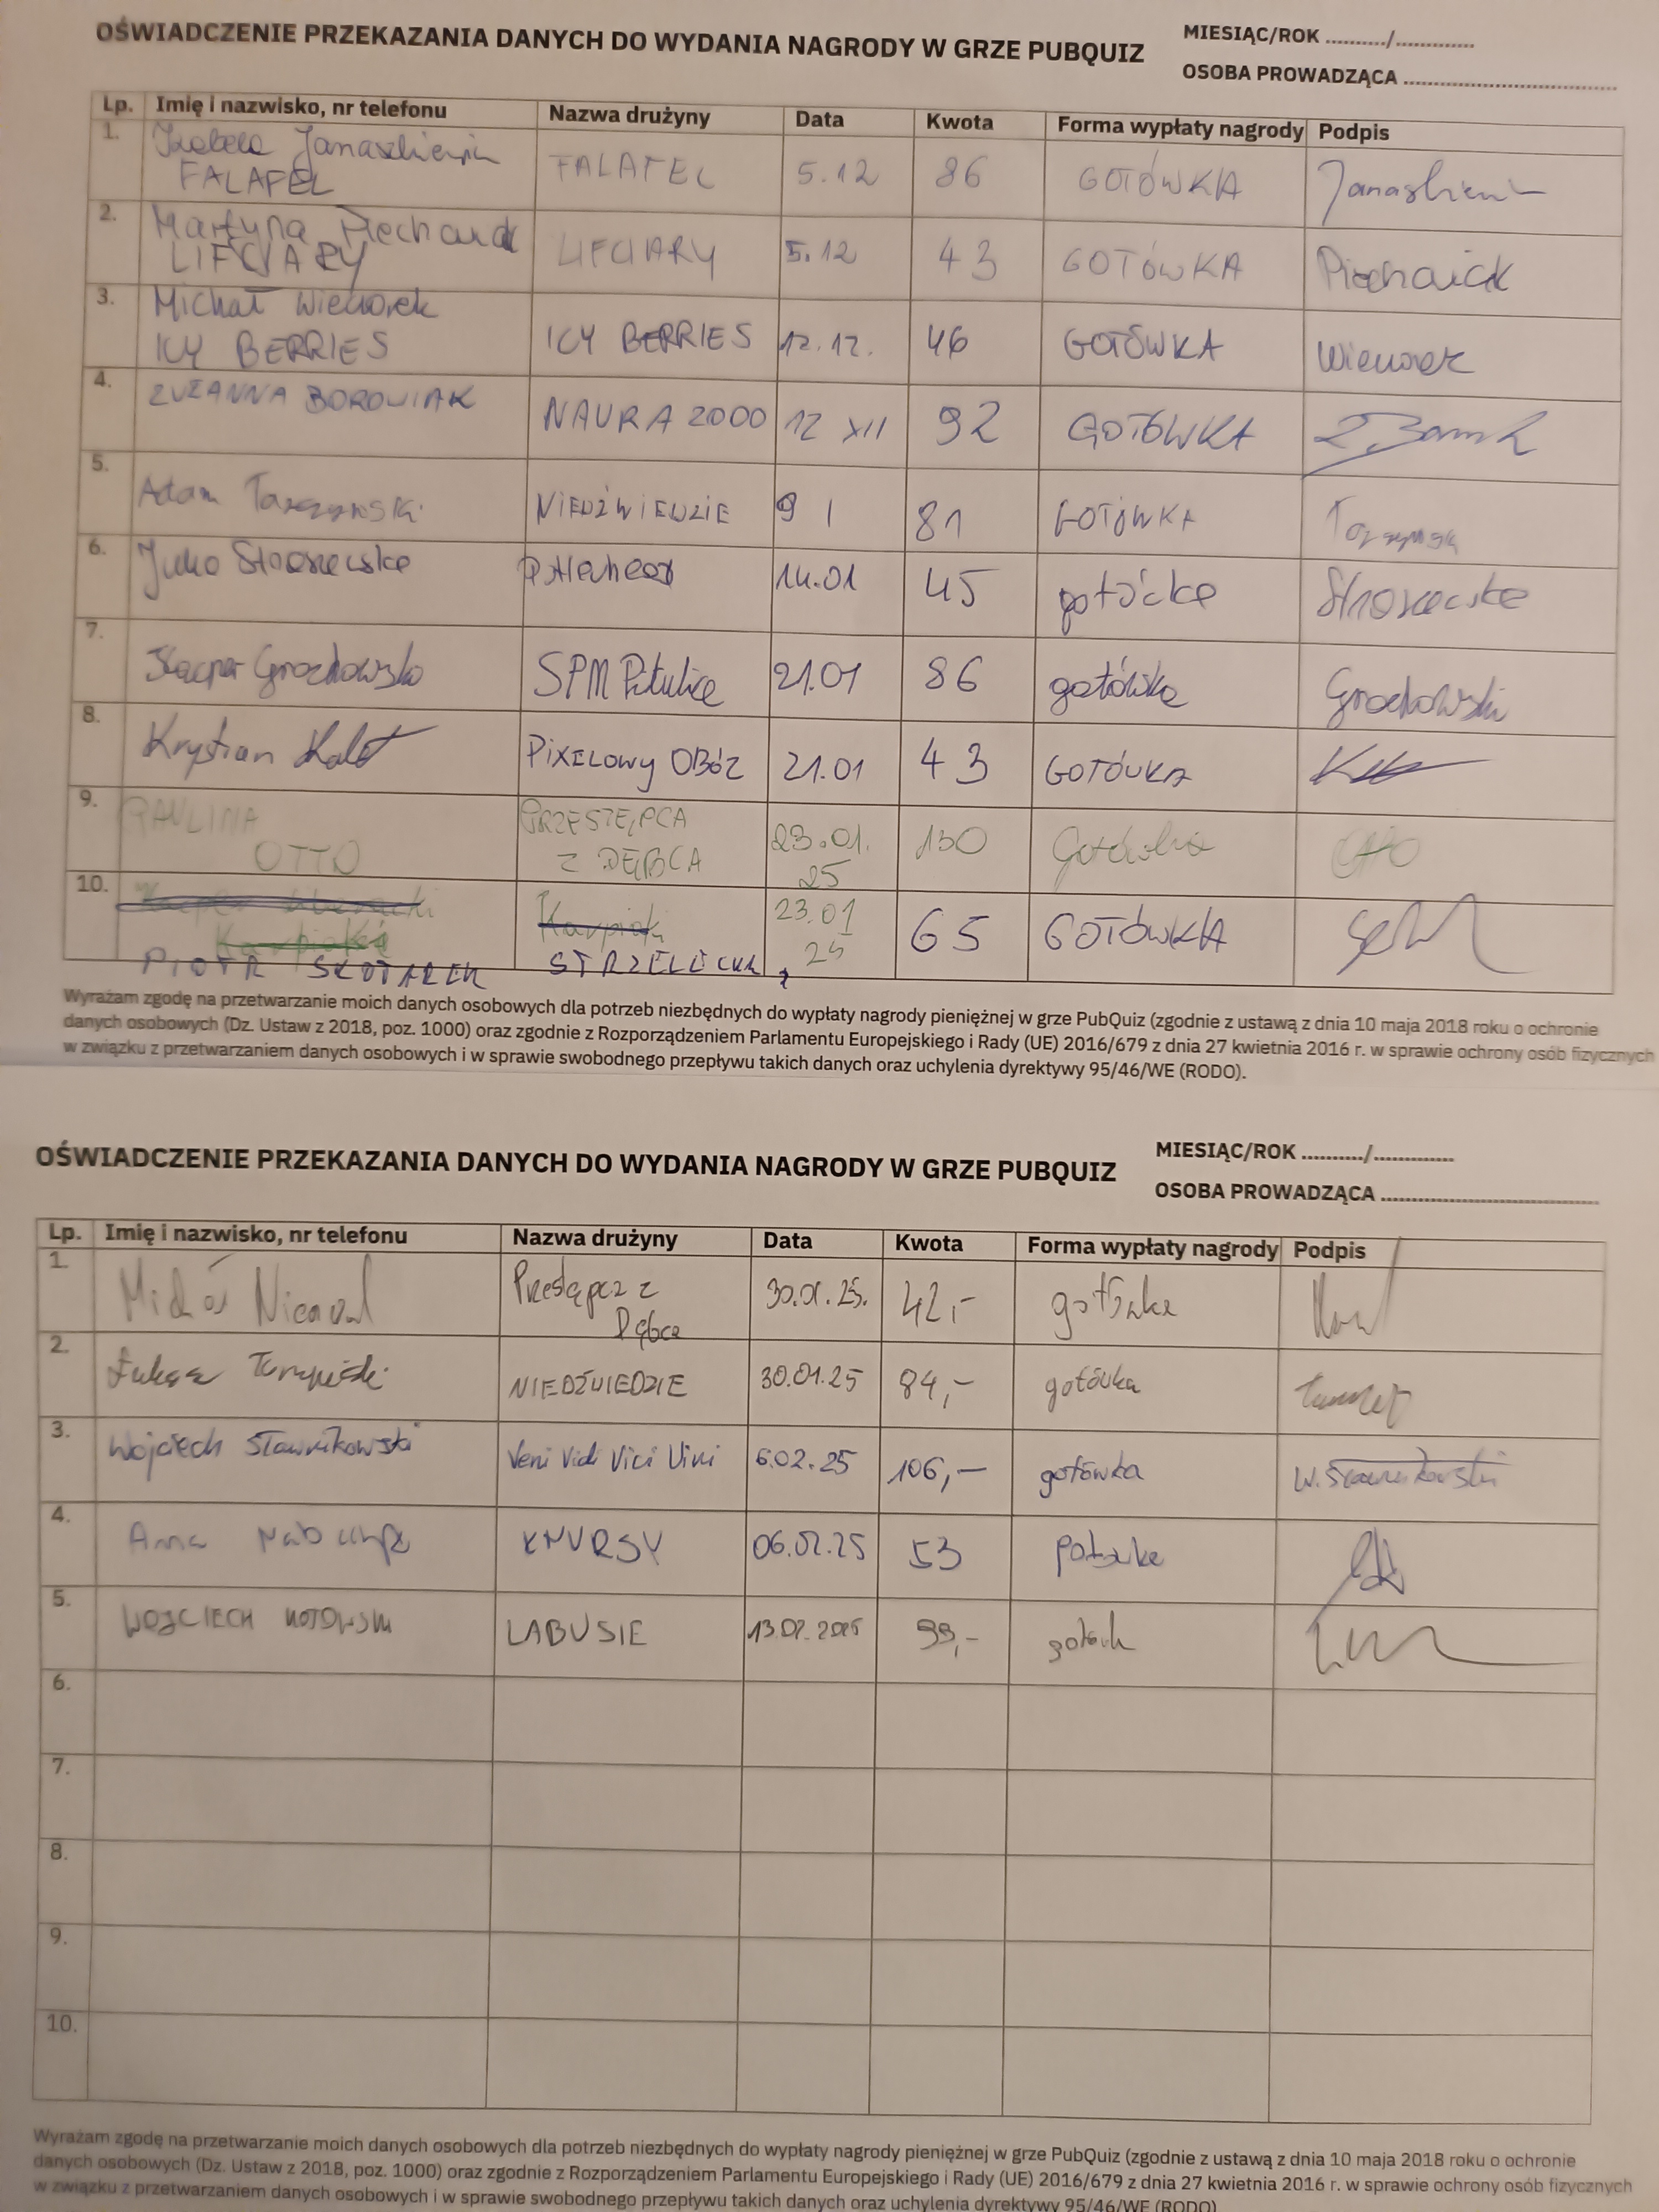 OŚWIADCZENIE PRZEKAZANIA DANYCH DO WYDANIA NAGRODY W GRZE PUBQUIZ
MIESIĄC/ROK ........../.............
OSOBA PROWADZĄCA ....................................
Lp. Imię i nazwisko, nr telefonu Nazwa drużyny Data Kwota Forma wypłaty nagrody Podpis
1. Izabela FALAFEL FALAFEL 5.12 86 GOTÓWKA
2. Martyna LIFCIARY LIFCIARY 5.12 43 GOTÓWKA
3. Michał ICY BERRIES ICY BERRIES 12.12. 46 GOTÓWKA
4. ZUZANNA BOROWIAK NAURA 2000 12 XII 92 GOTÓWKA
5. Adam NIEDŹWIEDZIE 9 I 81 GOTÓWKA
6. 14.01 45 gotówka
7. Kacper SPM Pitulice 21.01 86 gotówka Grochowski
8. Krystian PiXELOWY OBóZ 21.01 43 GOTÓWKA
9. PAULINA OTTO PRZESTĘPCA Z DĘBCA 23.01.25 130 Gotówka Otto
10. PIOTR STRZELECKA 23.01 25 65 GOTÓWKA
Wyrażam zgodę na przetwarzanie moich danych osobowych dla potrzeb niezbędnych do wypłaty nagrody pieniężnej w grze PubQuiz (zgodnie z ustawą z dnia 10 maja 2018 roku o ochronie
danych osobowych (Dz. Ustaw z 2018, poz. 1000) oraz zgodnie z Rozporządzeniem Parlamentu Europejskiego i Rady (UE) 2016/679 z dnia 27 kwietnia 2016 r. w sprawie ochrony osób fizycznych
w związku z przetwarzaniem danych osobowych i w sprawie swobodnego przepływu takich danych oraz uchylenia dyrektywy 95/46/WE (RODO).
OŚWIADCZENIE PRZEKAZANIA DANYCH DO WYDANIA NAGRODY W GRZE PUBQUIZ
MIESIĄC/ROK ........../.............
OSOBA PROWADZĄCA ....................................
Lp. Imię i nazwisko, nr telefonu Nazwa drużyny Data Kwota Forma wypłaty nagrody Podpis
1. z Dębca 30.01.25. 42,- gotówka
2. Łukasz NIEDŹWIEDZIE 30.01.25 84,- gotówka
3. Wojciech Sławnikowski Veni Vidi Vici Vini 6.02.25 106,- gotówka W. Sławnikowski
4. Anna KNURSY 06.02.25 53 gotówka
5. WOJCIECH LABUSIE 13.02.2025 99,-
6.
7.
8.
9.
10.
Wyrażam zgodę na przetwarzanie moich danych osobowych dla potrzeb niezbędnych do wypłaty nagrody pieniężnej w grze PubQuiz (zgodnie z ustawą z dnia 10 maja 2018 roku o ochronie
danych osobowych (Dz. Ustaw z 2018, poz. 1000) oraz zgodnie z Rozporządzeniem Parlamentu Europejskiego i Rady (UE) 2016/679 z dnia 27 kwietnia 2016 r. w sprawie ochrony osób fizycznych
w związku z przetwarzaniem danych osobowych i w sprawie swobodnego przepływu takich danych oraz uchylenia dyrektywy 95/46/WE (RODO)